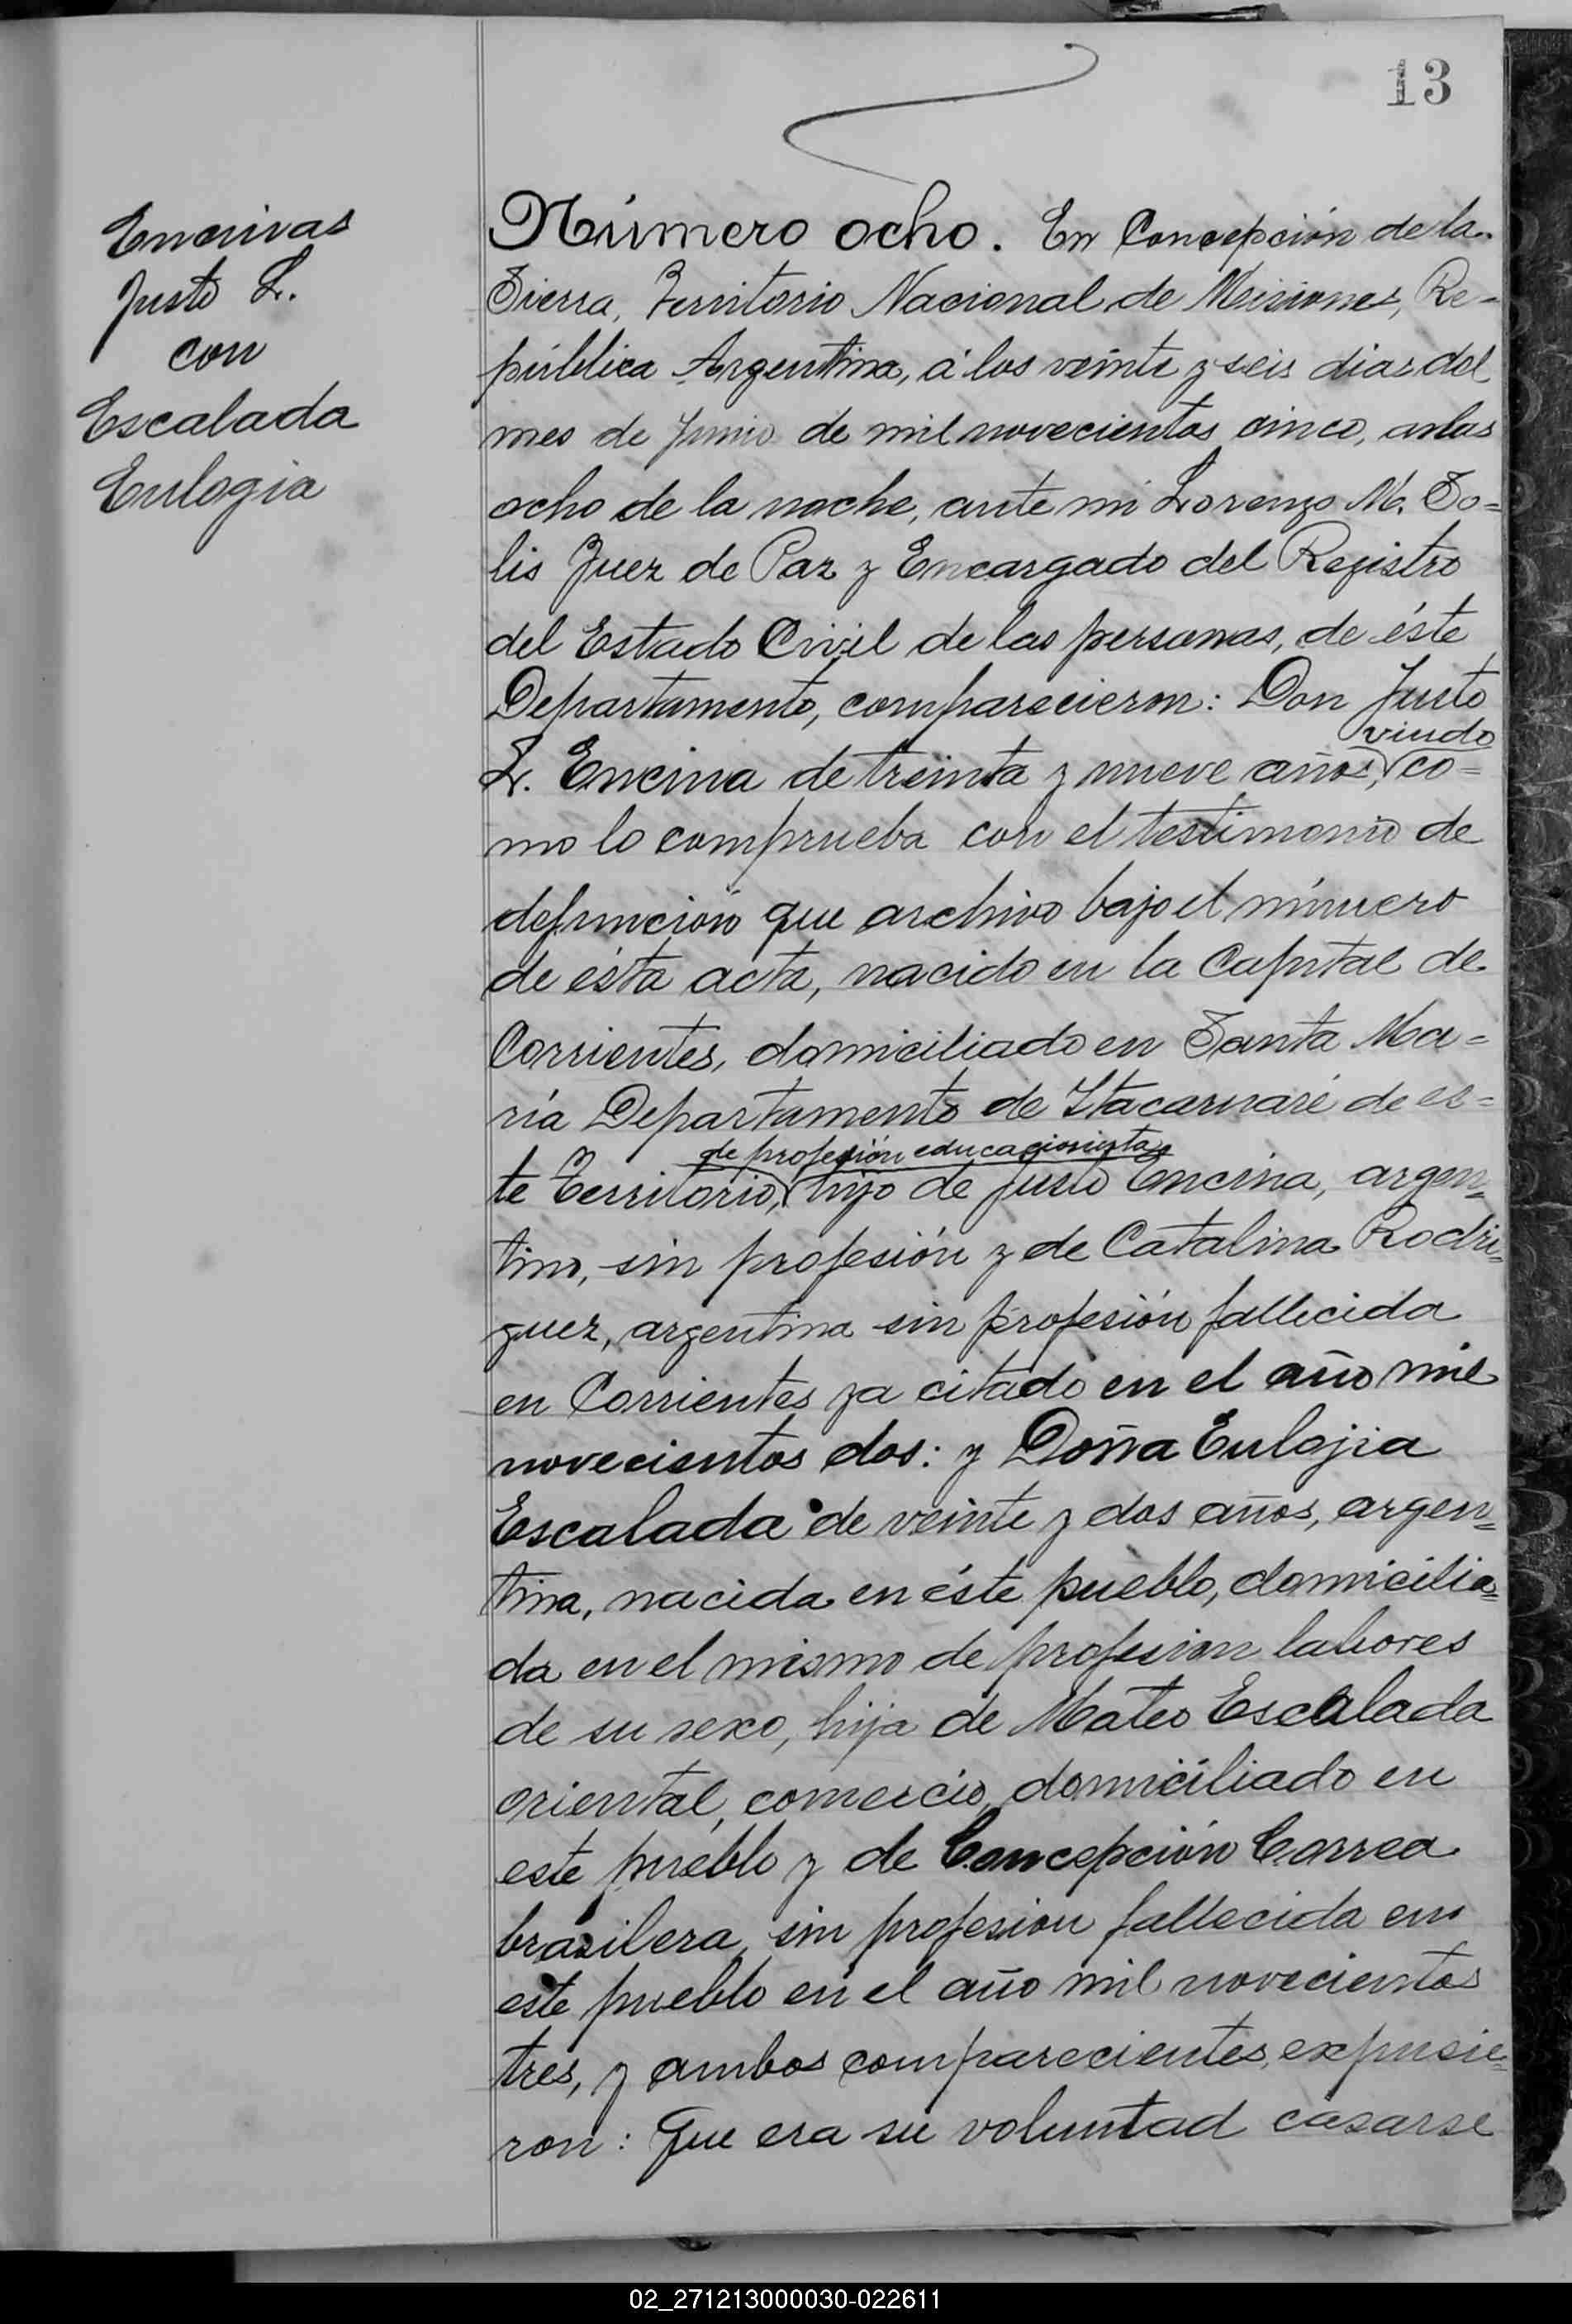 13
Encinas
Justo L.
con
Escalada
Eulogia
Número ocho. En Concepción de la
Sierra, Territorio Nacional de Misiones, Re-
pública Argentina, á los veinte y seis dias del
mes de Junio de mil novecientos cinco, a las
ocho de la noche, ante mi Lorenzo M. So=
lis Juez de Paz y Encargado del Registro
del Estado Civil de las personas, de éste
Departamento, comparecieron: Don Justo
viudo
L. Encina de treinta y nueve años, co=
mo lo comprueba con el testimonio de
defunción que archivo bajo el número
de ésta acta, nacido en la Capital de
Corrientes, domiciliado en Santa Ma=
ría Departamento de Itacaruaré de es=
de profesión educacionista
te Territorio, hijo de Justo Encina, argen=
tino, sin profesión y de Catalina Rodri=
guez, argentina sin profesión fallecida
en Corrientes ya citado en el año mil
novecientos dos: y Doña Eulojia
Escalada de veinte y dos años, argen=
tina, nacida en éste pueblo, domicilia=
da en el mismo de profesion labores
de su sexo, hija de Mateo Escalada
oriental, comercio, domiciliado en
este pueblo y de Concepción Correa
brasilera, sin profesion fallecida en
este pueblo en el año mil novecientos
tres, y ambos comparecientes, expusie=
ron: Que era su voluntad casarse
02_271213000030-022611